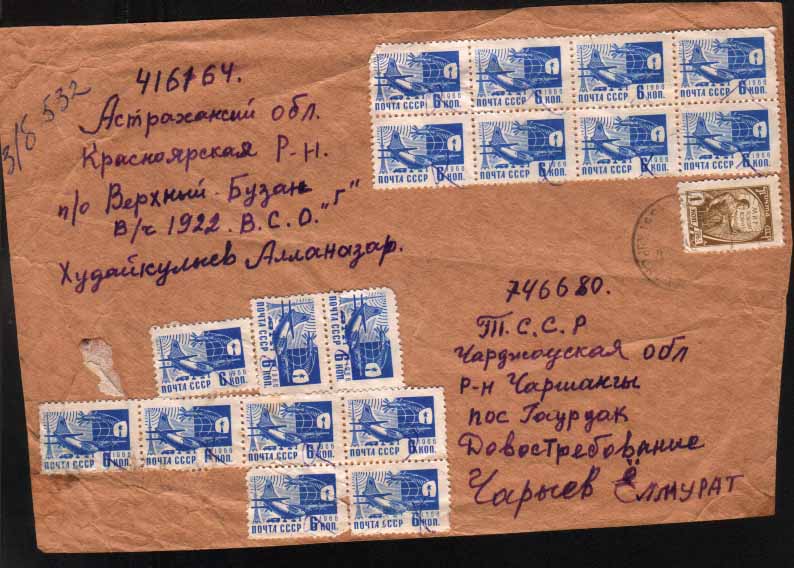 3/б 532
416764.
Астраханский обл.
Красноярская Р-Н.
п/о Верхний-Бузан
В/ч 1922. В.С.О. "Г"
Худайкулыев Алланазар.
746680.
Т.С.С.Р
Чарджоуская обл
Р-Н Чаршангы
пос Гаурдак
Довостребование
Чарыев Ёлмурат
1966
ПОЧТА СССР 6 КОП.
1966
ПОЧТА СССР 6 КОП.
1966
ПОЧТА СССР 6 КОП.
1966
ПОЧТА СССР 6 КОП.
1966
ПОЧТА СССР 6 КОП.
1966
ПОЧТА СССР 6 КОП.
1966
ПОЧТА СССР 6 КОП.
1966
ПОЧТА СССР 6 КОП.
1966
ПОЧТА СССР 6 КОП.
1966
ПОЧТА СССР 6 КОП.
1966
ПОЧТА СССР 6 КОП.
1966
ПОЧТА СССР 6 КОП.
1966
ПОЧТА СССР 6 КОП.
1966
ПОЧТА СССР 6 КОП.
1966
ПОЧТА СССР 6 КОП.
1966
ПОЧТА СССР 6 КОП.
1966
ПОЧТА СССР 6 КОП.